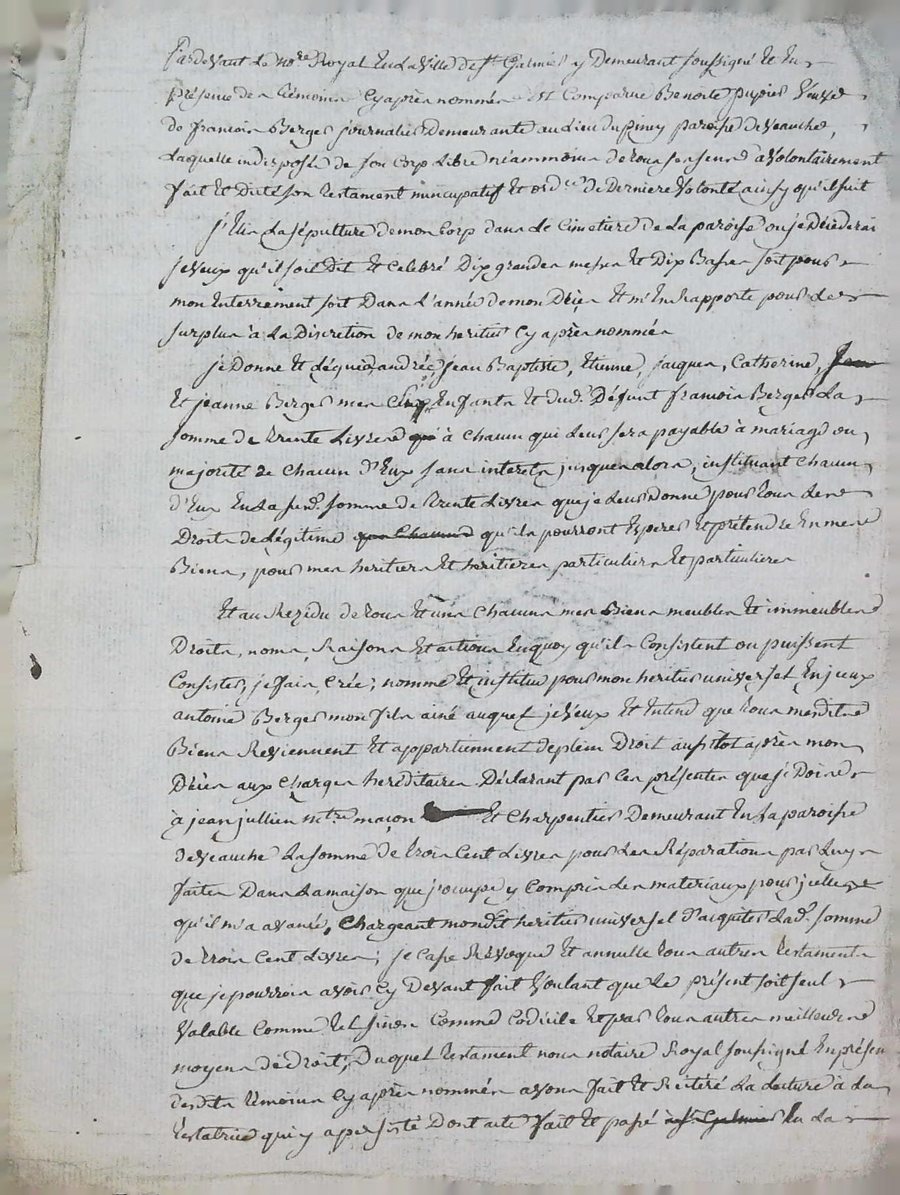 Pardevant Le no.re Royal En La Ville de St Galmier y Demeurant soussigné Et En
présence des témoins Cy après nommés Est Comparue Benoite pupier Veuve
de francois Berger journalier Demeurante au Lieu du piney paroisse de veauche,
Laquelle indisposée de son Corp Libre néammoins de tous ses sens a Volontairement
fait Et Dicté son testament nuncupatif Et ord.ce de Derniere Volonté ainsy qu'il suit
j'Elis La sépulture de mon Corp dans Le Cimetiere de La paroisse ou je Décéderai
je veux qu'il soit Dit Et Celebré Dix grandes messes Et Dix Basses soit pour
mon Enterrement soit Dans L'année de mon Décès Et m'En Rapporte pour Le
surplus à La Discretion de mon heritier Cy après nommé
je Donne Et Légue à andré, jean Baptiste, Etienne, jacques, Catherine,
Et jeanne Berger mes Six Enfants Et dud. Défunt francois Berger La
somme de trente Livres à Chacun qui Leur sera payable à mariage ou
majorité de Chacun d'Eux sans interets jusques alors, instituant Chacun
d'Eux En La sus.d. somme de trente Livres que je Leur Donne pour tous Leurs
Droits de Légitime que Chacun qu'ils pourront Esperer Et prétendre En mes
Biens, pour mes heritiers Et heritieres particuliers Et particulieres
Et au Rezidu de tous Et uns Chacuns mes Biens meubles Et immeubles
Droits, noms, Raisons Et actions En quoy qu'ils Consistent ou puissent
Consister, je fais, Crée, nomme Et institue pour mon heritier universel En jceux
antoine Berger mon fils ainé auquel je Veux Et Entend que tous mesdits
Biens Reviennent Et appartiennent de plein Droit aussitot après mon
Décès aux Charges hereditaires Déclarant par Ces présentes que je Dois
à jean jullien m.tre maçon Et Charpentier Demeurant En La paroisse
de veauche La somme de trois Cent Livres pour Les Réparations par Luy
faites Dans La maison que j'occupe y Compris Les materiaux pour jcelles
qu'il m'a avancé, Chargeant mondit heritier universel d'acquiter Lad. somme
de trois Cent Livres; je Casse Révoque Et annulle tous autres testaments
que je pourrois avoir Cy Devant fait Voulant que Le présent soit seul
Valable Comme tel sinon Comme Codicile Et par tous autres meilleurs
moyens de Droit, Duquel testament nous notaire Royal soussigné En présence
desdits témoins Cy après nommés avons fait Et Réiteré La Lecture à La
testatrice qui y a persisté Dont acte fait Et passé à St Galmier En La